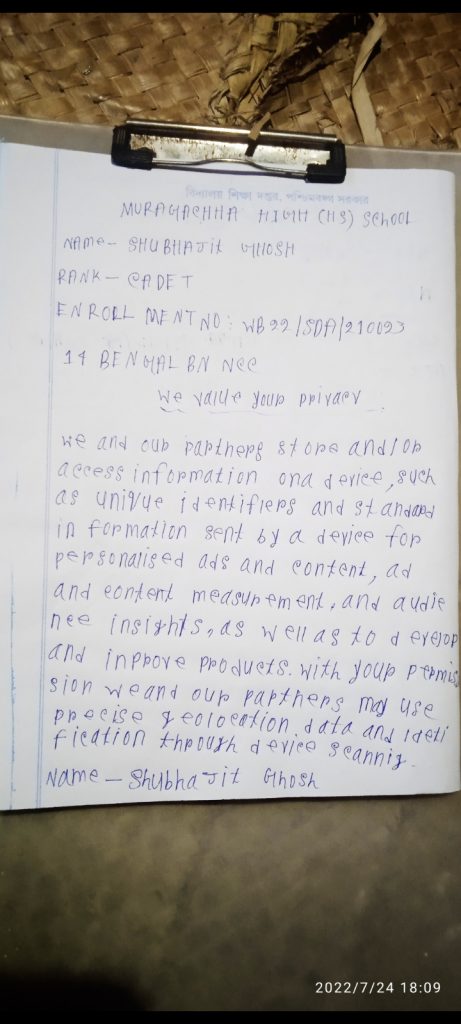 বিদ্যালয় শিক্ষা দপ্তর, পশ্চিমবঙ্গ সরকার
MURAGACHHA HIGH (HS) SCHOOL
NAME- SHUBHAJIT GHOSH
RANK - CADET
ENROLLMENT NO: WB22/SDA/210023
14 BENGAL BN NCC
We value your privacy
We and our partners store and/or
access information on a device, such
as unique identifiers and standard
information sent by a device for
personalised ads and content, ad
and content measurement, and audie
nce insights, as well as to develop
and inprove products. With your permis
sion we and our partners may use
precise geolocation data and identi
fication through device scannig.
Name - Shubhajit Ghosh
2022/7/24 18:09